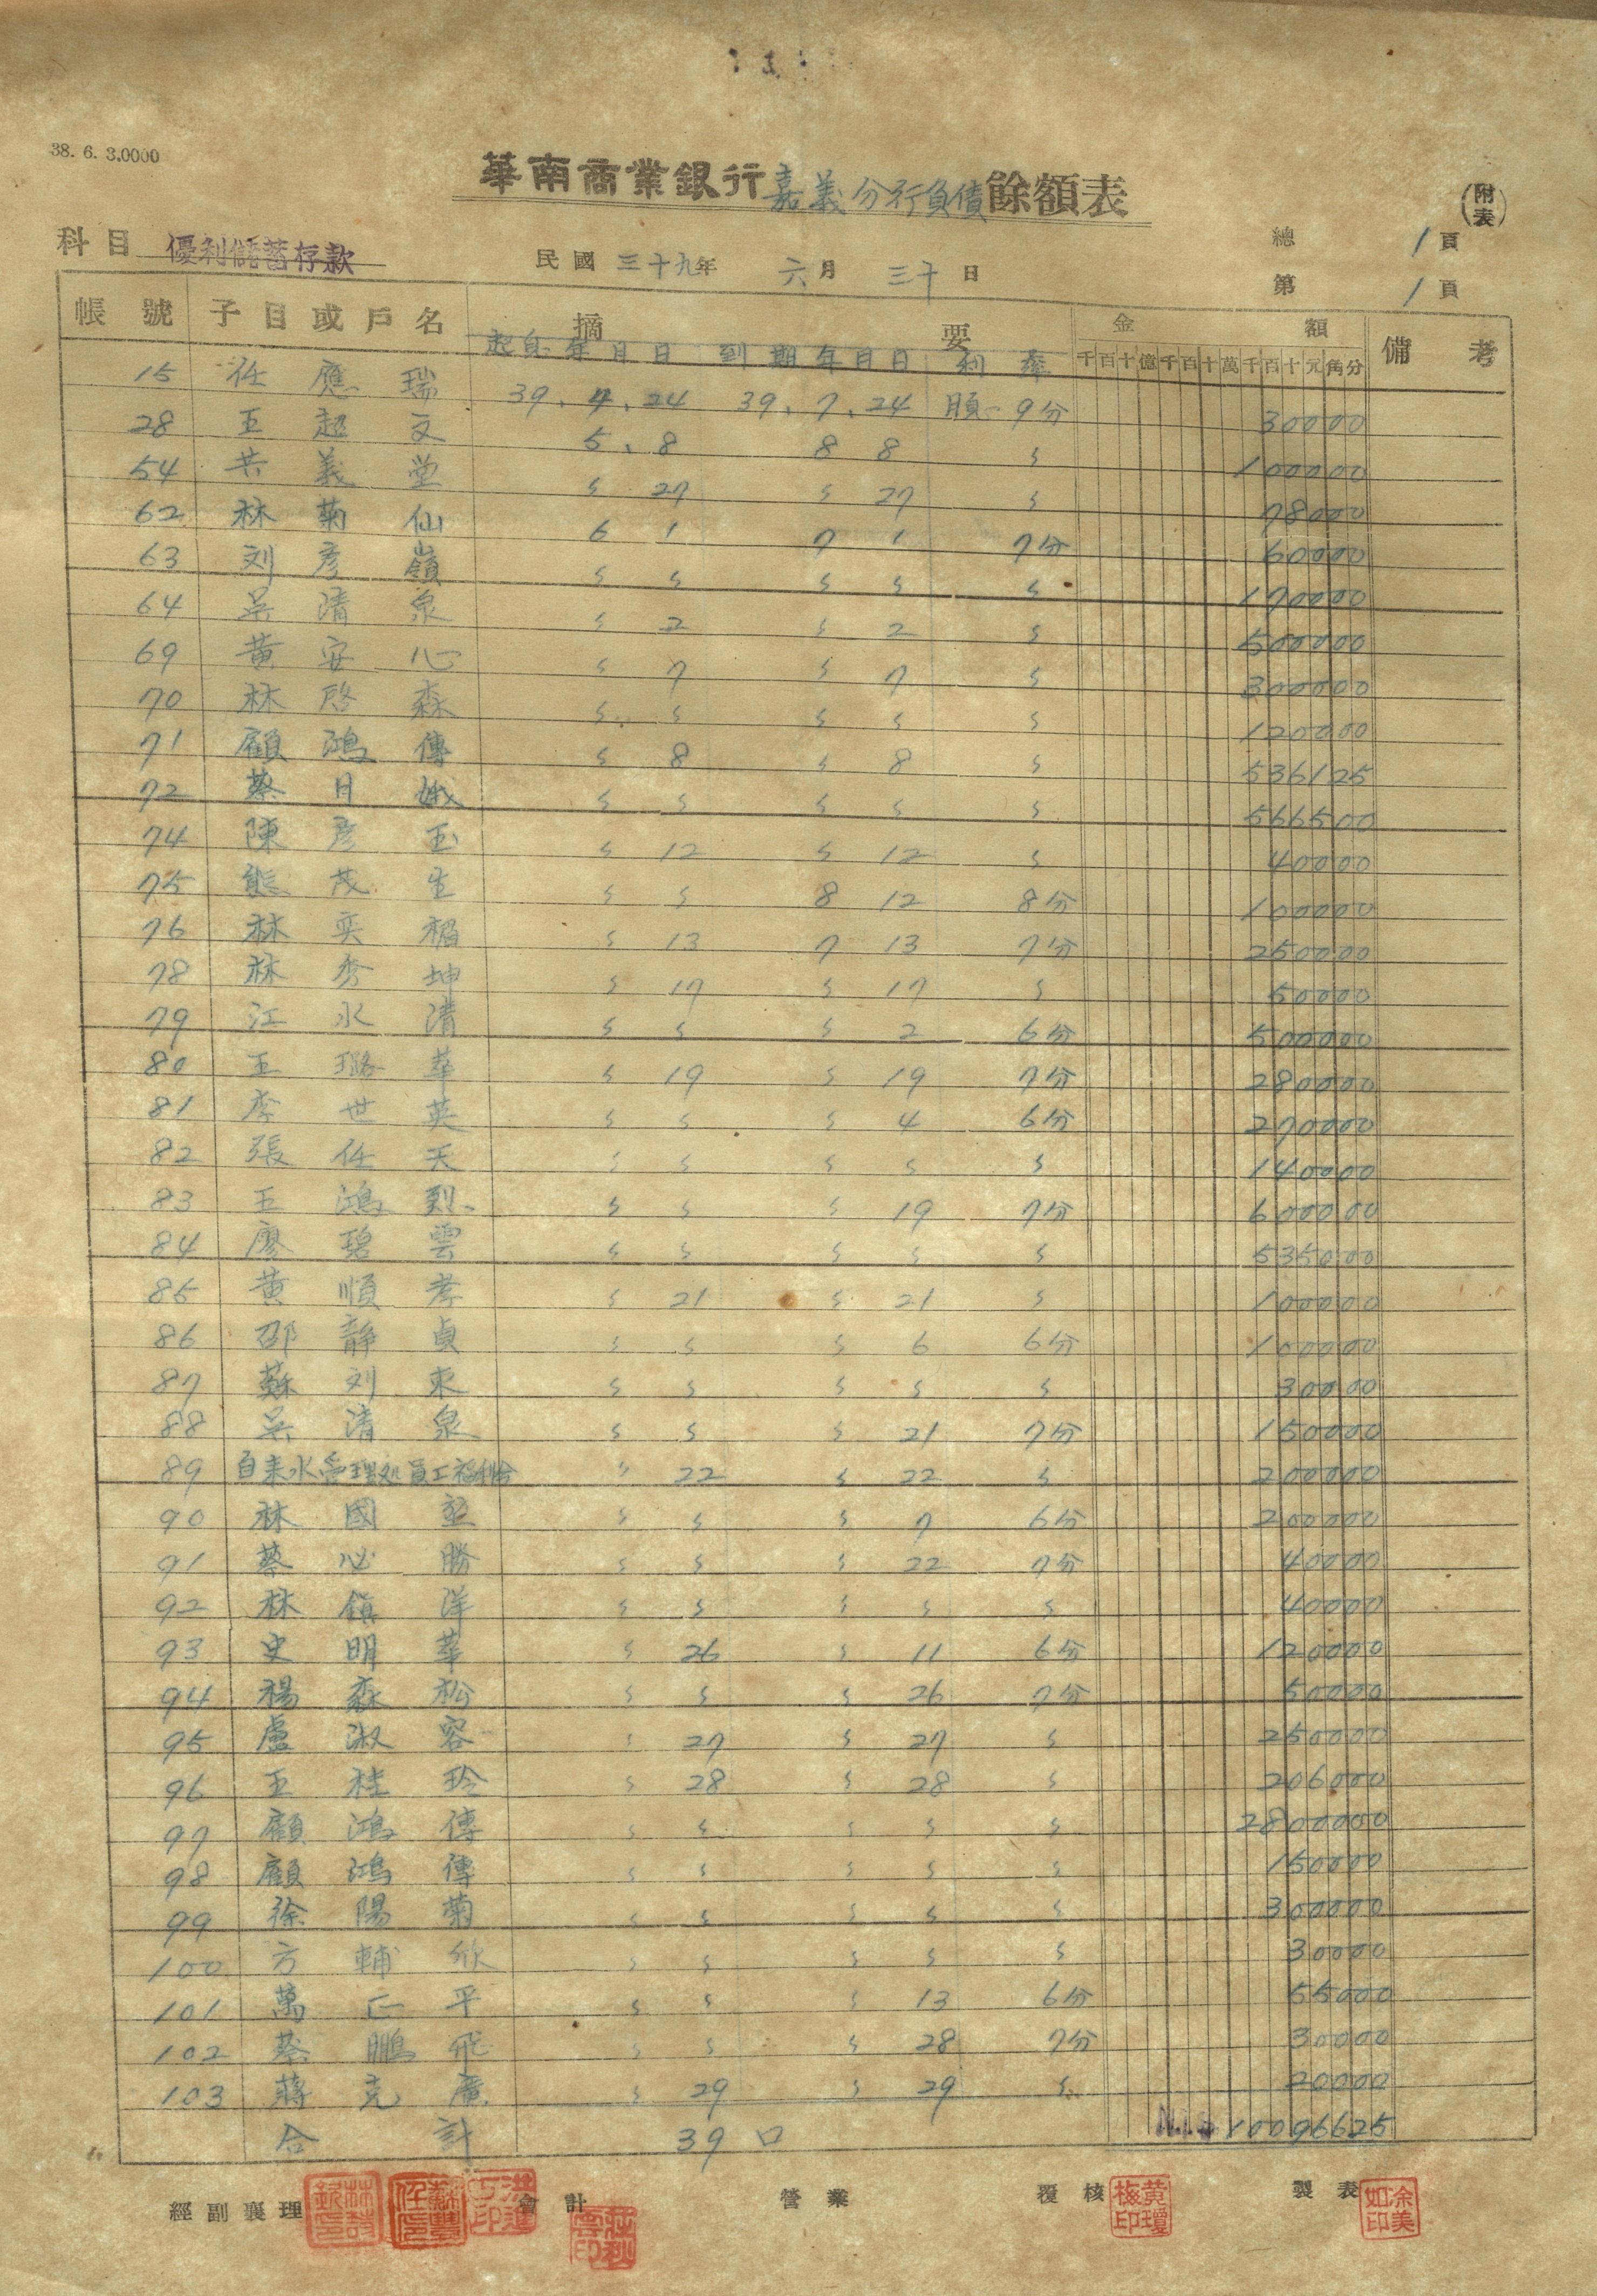 38. 6. 3.0000
華南商業銀行嘉義分行負債餘額表
(附表)
科目 優利儲蓄存款 民國三十九年六月三十日 總1頁
第1頁
帳號 子目或戶名 摘要 金額 備考
起息年月日 到期年月日 利率 千百十億千百十萬千百十元角分
15 任應瑞 39.4.24 39.7.24 月 9分 30000
28 王超文 5.8 8 8 〃 100000
54 共義堂 〃 27 〃 27 〃 78000
62 林菊仙 6 1 7 1 7分 60000
63 刘彥嶺 〃 〃 〃 〃 〃 170000
64 吳清泉 〃 2 〃 2 〃 500000
69 黃安心 〃 7 〃 7 〃 300000
70 林啓森 〃 〃 〃 〃 〃 120000
71 顧鴻傳 〃 8 〃 8 〃 536125
72 蔡月娥 〃 〃 〃 〃 〃 566500
74 陳彥玉 〃 12 〃 12 〃 40000
75 熊茂生 〃 〃 8 12 8分 100000
76 林奕 〃 13 7 13 7分 250000
78 林秀坤 〃 17 〃 17 〃 50000
79 江水清 〃 〃 〃 2 6分 500000
80 王璐華 〃 19 〃 19 7分 280000
81 李世英 〃 〃 〃 4 6分 270000
82 張任天 〃 〃 〃 〃 〃 140000
83 王鴻烈 〃 〃 〃 19 7分 600000
84 廖碧雲 〃 〃 〃 〃 〃 535000
85 黃順孝 〃 21 〃 21 〃 100000
86 邵靜貞 〃 〃 〃 6 6分 100000
87 蘇刘來 〃 〃 〃 〃 〃 30000
88 吳清泉 〃 〃 〃 21 7分 150000
89 自来水管理処員工福利会 〃 22 〃 22 〃 200000
90 林國 〃 〃 〃 7 6分 200000
91 蔡必勝 〃 〃 〃 22 7分 40000
92 林鎮洋 〃 〃 〃 〃 〃 40000
93 史明華 〃 26 〃 11 6分 120000
94 楊森松 〃 〃 〃 26 7分 50000
95 盧淑容 〃 27 〃 27 〃 250000
96 王桂玲 〃 28 〃 28 〃 206000
97 顧鴻傳 〃 〃 〃 〃 〃 2800000
98 顧鴻傳 〃 〃 〃 〃 〃 150000
99 徐陽菊 〃 〃 〃 〃 〃 300000
100 方輔欣 〃 〃 〃 〃 〃 30000
101 萬正平 〃 〃 〃 13 6分 55000
102 蔡鵬飛 〃 〃 〃 28 7分 30000
103 蔣克廣 〃 29 〃 29 〃 20000
合計 39口 10096625
經副襄理 會計 營業 覆核 黃瓊梅印 製表 涂美如印